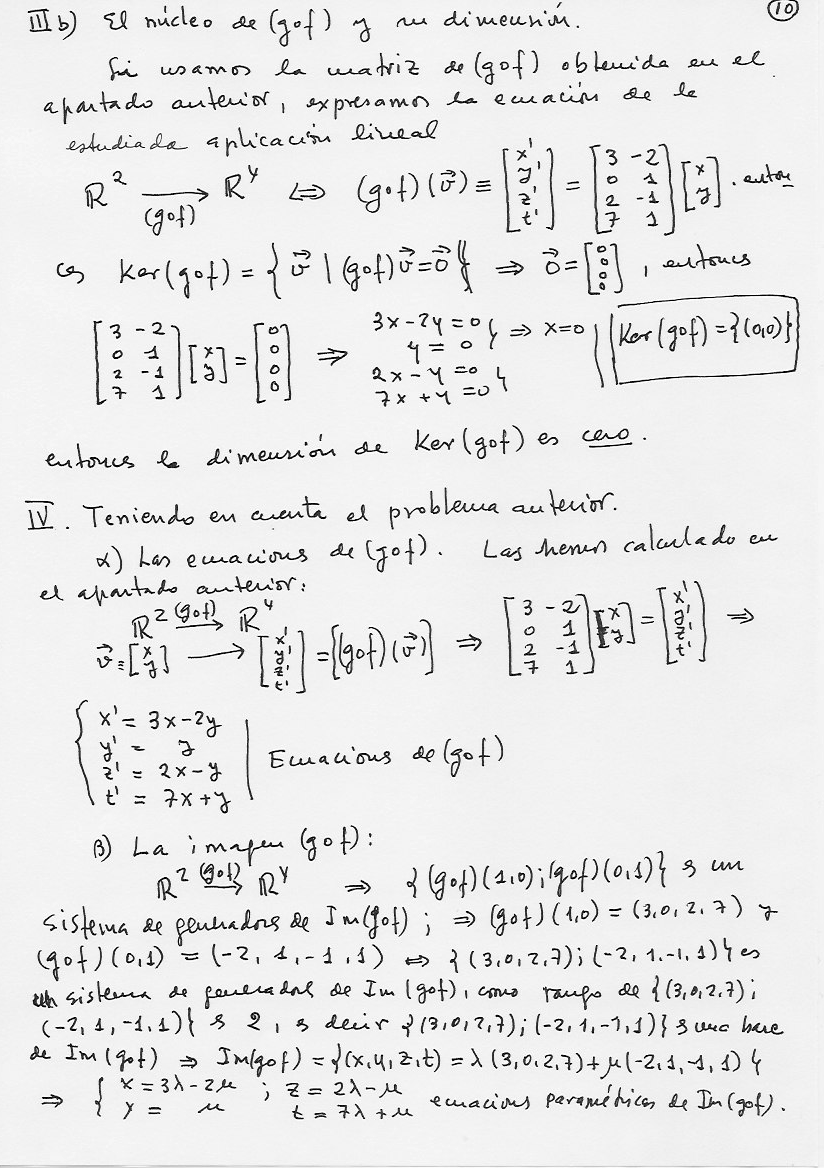 10
III b) El núcleo de (gof) y su dimensión.
Si usamos la matriz de (gof) obtenida en el
apartado anterior, expresamos la ecuación de la
estudiada aplicación lineal
ℝ² ⟶(gof) ℝ⁴ ⇔ (gof)(v⃗) ≡ [x' y' z' t'] = [3 -2; 0 1; 2 -1; 7 1] [x y] . enton
ces Ker(gof) = { v⃗ | (gof)v⃗ = 0⃗ } ⇒ 0⃗ = [0 0 0 0] , entonces
[3 -2; 0 1; 2 -1; 7 1] [x y] = [0 0 0 0] ⇒ 3x-2y=0 y=0 } ⇒ x=0 | Ker(gof) = {(0,0)}
2x-y=0
7x+y=0 }
entonces la dimensión de Ker(gof) es cero.
IV. Teniendo en cuenta el problema anterior.
α) Las ecuacions de (gof). Las hemos calculado en
el apartado anterior:
ℝ² ⟶(gof) ℝ⁴
v⃗ ≡ [x y] ⟶ [x' y' z' t'] = [(gof)(v⃗)] ⇒ [3 -2; 0 1; 2 -1; 7 1] [x y] = [x' y' z' t'] ⇒
{ x' = 3x-2y
y' = y
z' = 2x-y
t' = 7x+y | Ecuacions de (gof)
β) La imagen (gof):
ℝ² ⟶(gof) ℝ⁴ ⇒ {(gof)(1,0); (gof)(0,1)} es un
sistema de generadores de Im(gof); ⇒ (gof)(1,0) = (3,0,2,7) y
(gof)(0,1) = (-2,1,-1,1) ⇔ {(3,0,2,7); (-2,1,-1,1)} es
un sistema de generadores de Im(gof), como rango de {(3,0,2,7);
(-2,1,-1,1)} es 2, es decir {(3,0,2,7); (-2,1,-1,1)} es una base
de Im(gof) ⇒ Im(gof) = {(x,y,z,t) = λ(3,0,2,7) + μ(-2,1,-1,1)}
⇒ { x = 3λ-2μ ; z = 2λ-μ
y = μ t = 7λ+μ ecuacions paramétricas de Im(gof).